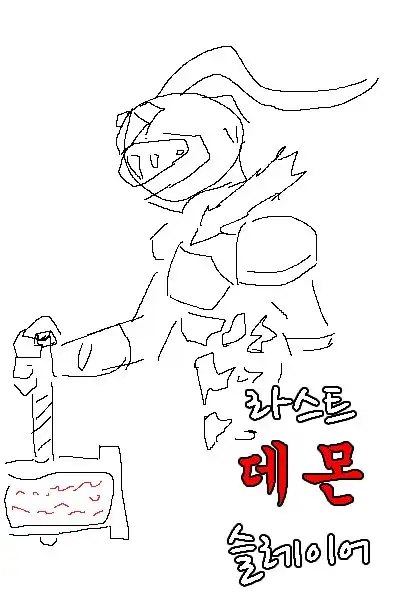 라스트
데몬
슬레이어